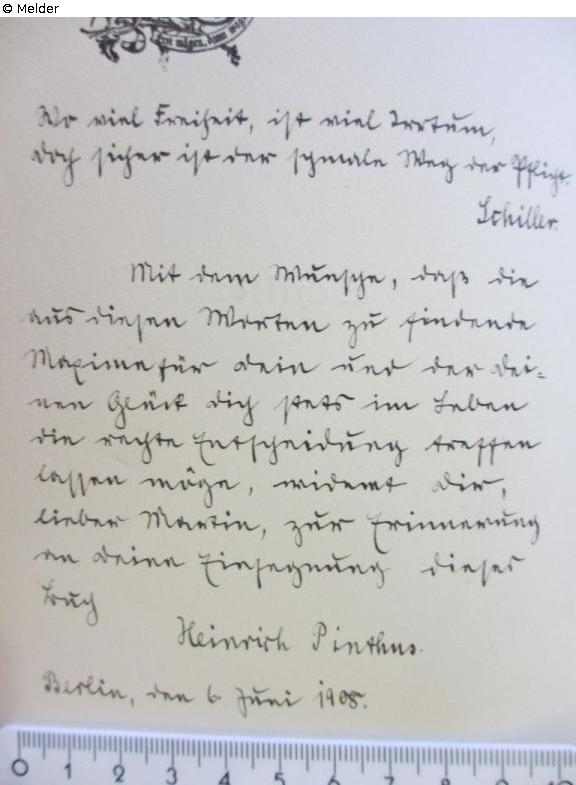 © Melder
Wo viel Freiheit, ist viel Irrtum,
doch sicher ist der schmale Weg der Pflicht.
Schiller.
Mit dem Wunsche, daß die
aus diesen Worten zu findende
Maxime für dein und der Dei-
nen Glück dich stets im Leben
die rechte Entscheidung treffen
lassen möge, widmet dir,
lieber Martin, zur Erinnerung
an deine Einsegnung dieses
Buch
Heinrich Pinthus.
Berlin, den 6. Juni 1908.
0 1 2 3 4 5 6 7 8 9 10